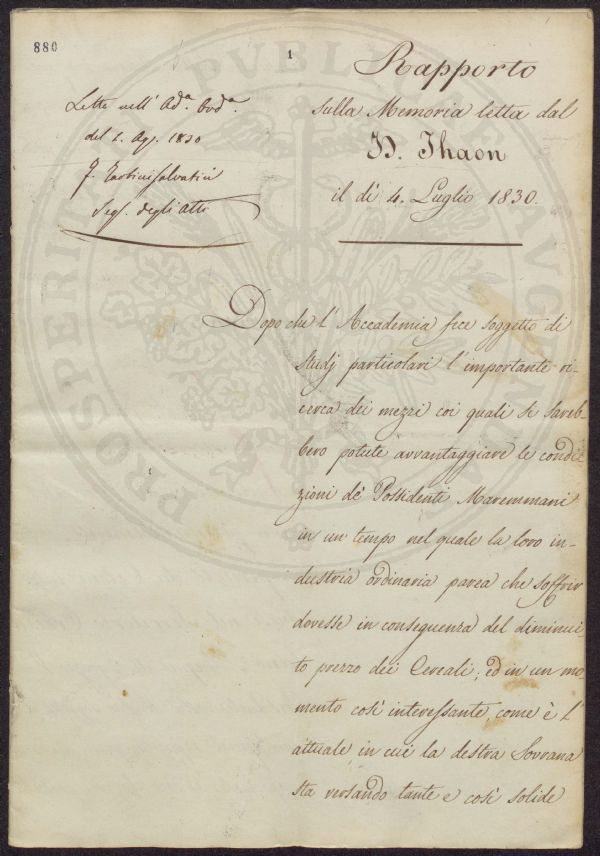 880
1
Letto nell' Ad.ª Ord.ª
del 1. Ago. 1830
F. Tartini Salvatici
Seg. degli Atti
Rapporto
sulla Memoria letta dal
D. Thaon
il dì 4. Luglio 1830.
Dopo che l' Accademia fece soggetto di
studj particolari l'importante ri-
cerca dei mezzi coi quali si sareb-
bero potute avvantaggiare le condi-
zioni de' Possidenti Maremmani
in un tempo nel quale la loro in-
dustria ordinaria parea che soffrir
dovesse in conseguenza del diminui
to prezzo dei Cereali; ed in un mo
mento così interessante, come è l'
attuale, in cui la destra Sovrana
sta versando tante e così solide
PROSPERITATI PVBLICAE AVGENDAE